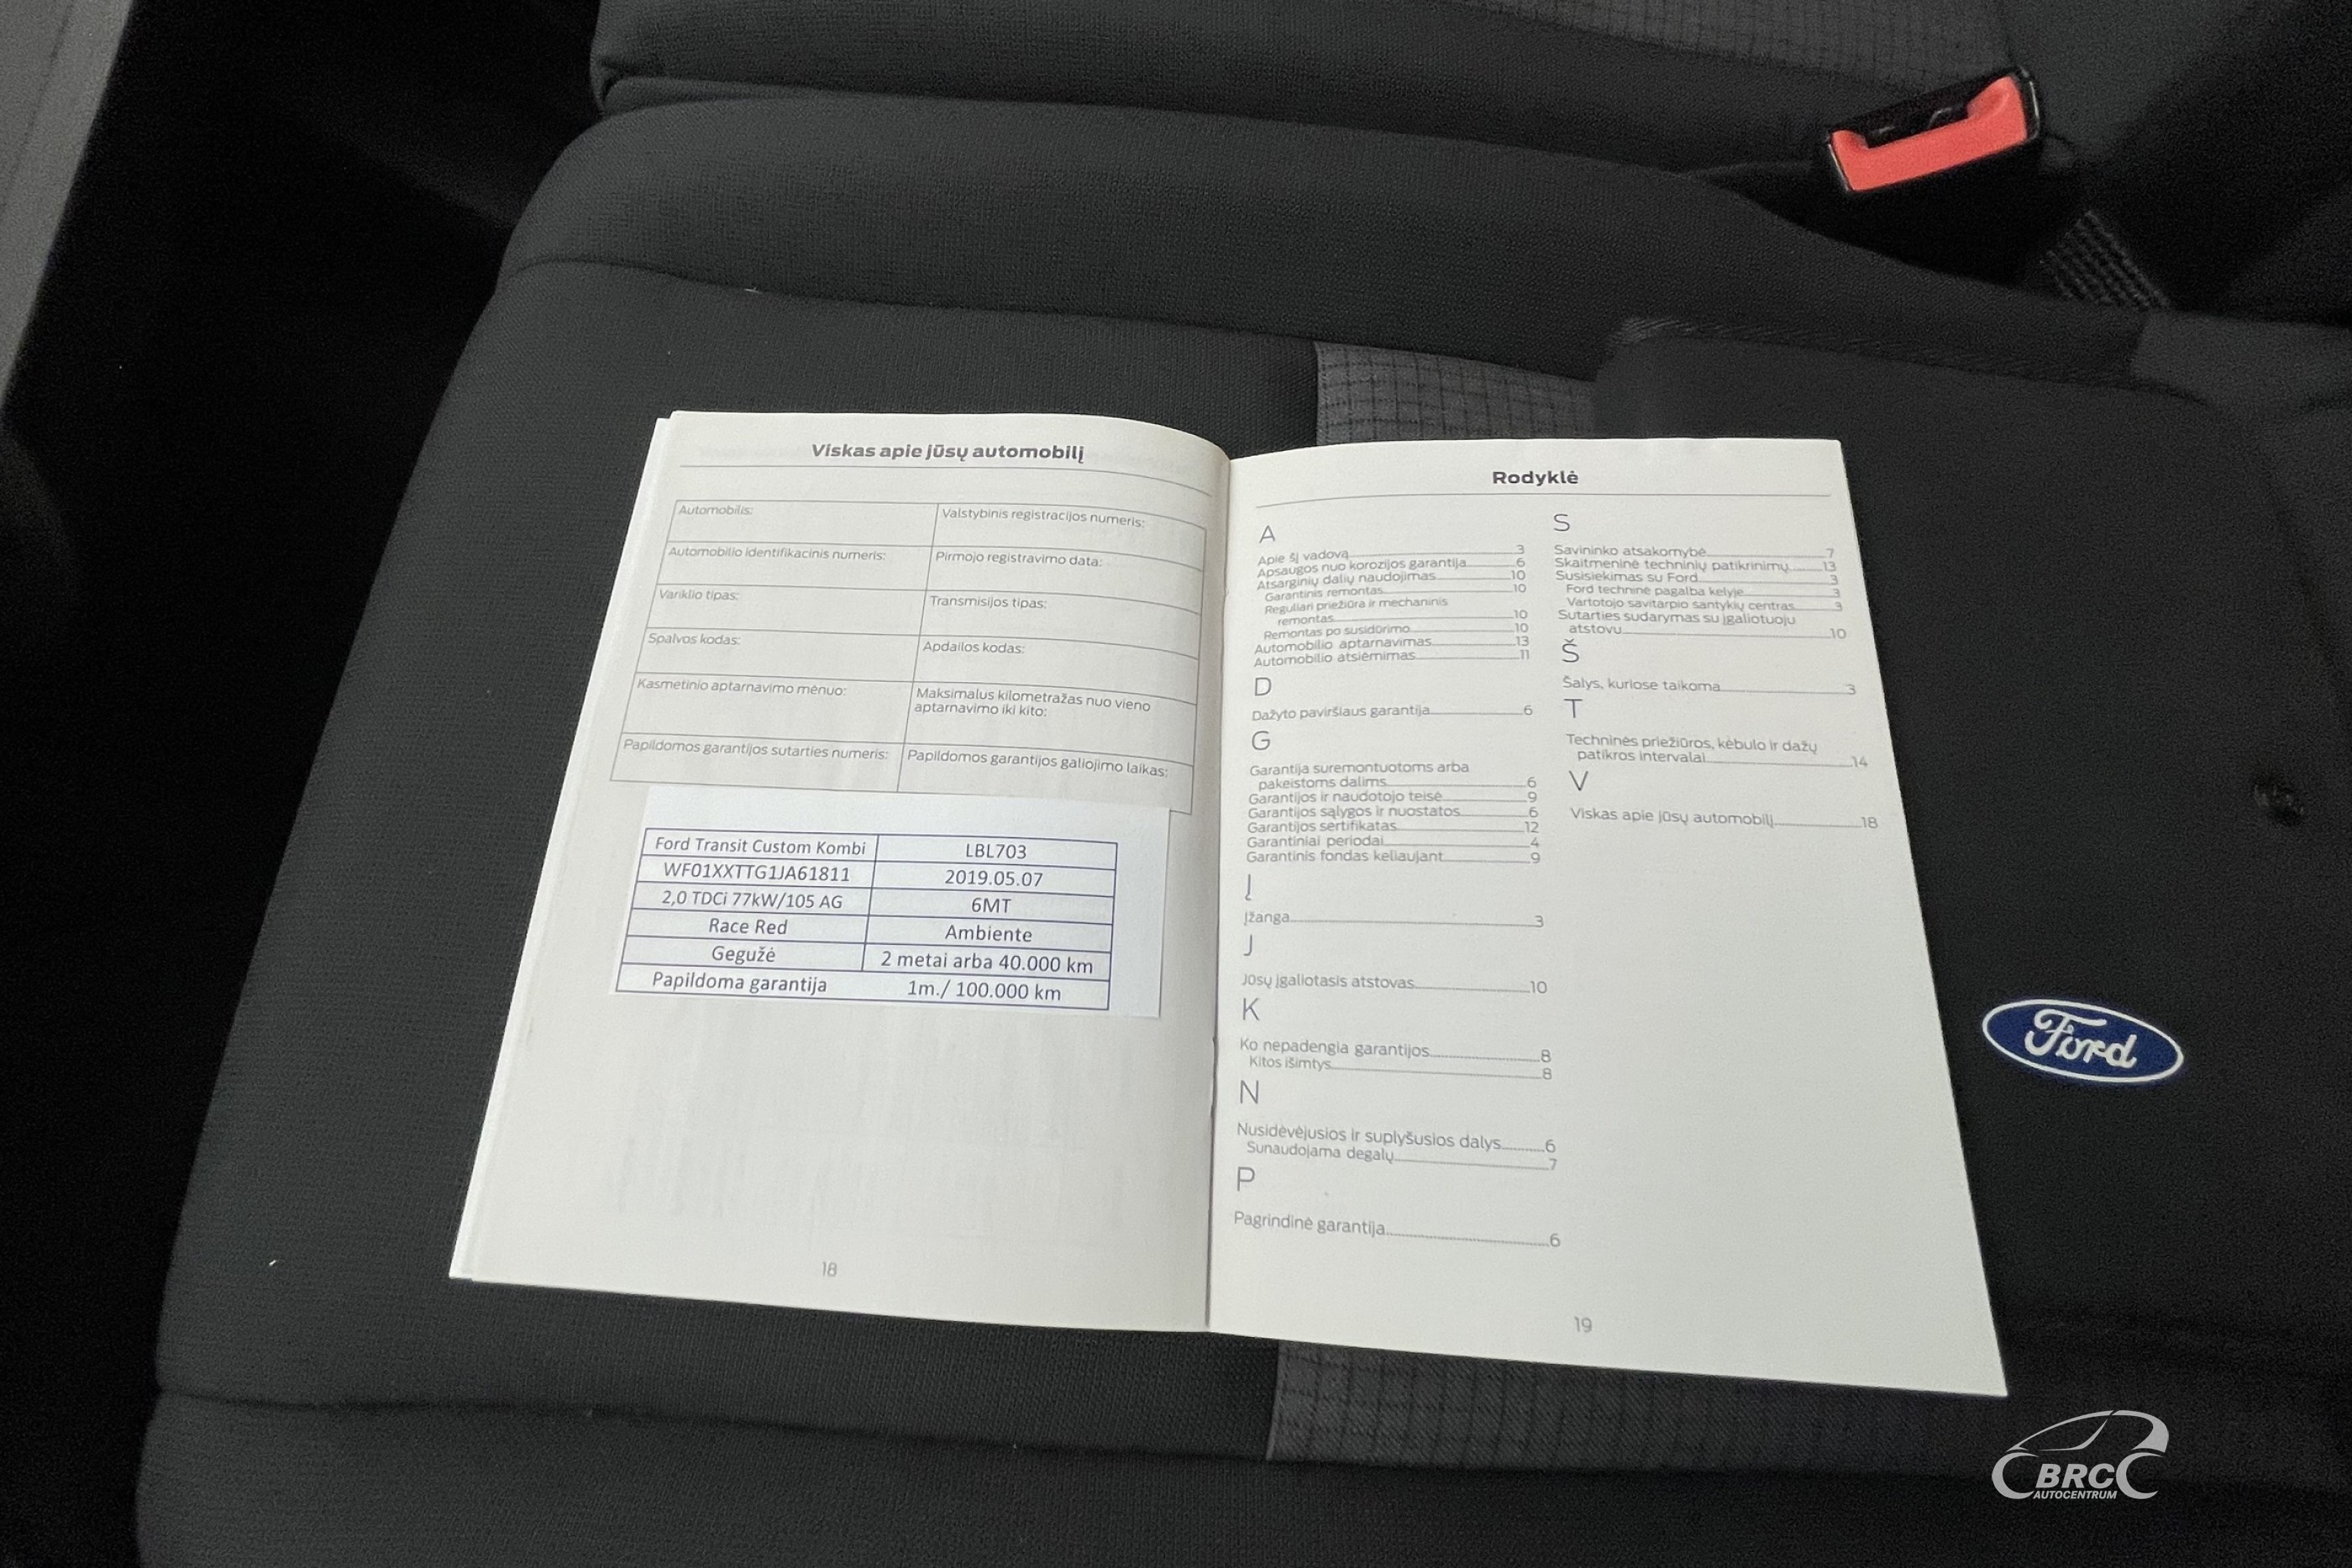 Viskas apie jūsų automobilį
Automobilis: Valstybinis registracijos numeris:
Automobilio identifikacinis numeris: Pirmojo registravimo data:
Variklio tipas: Transmisijos tipas:
Spalvos kodas: Apdailos kodas:
Kasmetinio aptarnavimo mėnuo: Maksimalus kilometražas nuo vieno
aptarnavimo iki kito:
Papildomos garantijos sutarties numeris: Papildomos garantijos galiojimo laikas:
Ford Transit Custom Kombi LBL703
WF01XXTTG1JA61811 2019.05.07
2,0 TDCi 77kW/105 AG 6MT
Race Red Ambiente
Gegužė 2 metai arba 40.000 km
Papildoma garantija 1m./ 100.000 km
18
Rodyklė
A
Apie šį vadovą 3
Apsaugos nuo korozijos garantija 6
Atsarginių dalių naudojimas 10
Garantinis remontas 10
Reguliari priežiūra ir mechaninis
remontas 10
Remontas po susidūrimo 10
Automobilio aptarnavimas 13
Automobilio atsiėmimas 11
D
Dažyto paviršiaus garantija 6
G
Garantija suremontuotoms arba
pakeistoms dalims 6
Garantijos ir naudotojo teisė 9
Garantijos sąlygos ir nuostatos 6
Garantijos sertifikatas 12
Garantiniai periodai 4
Garantinis fondas keliaujant 9
Į
Įžanga 3
J
Jūsų įgaliotasis atstovas 10
K
Ko nepadengia garantijos 8
Kitos išimtys 8
N
Nusidėvėjusios ir suplyšusios dalys 6
Sunaudojama degalų 7
P
Pagrindinė garantija 6
S
Savininko atsakomybė 7
Skaitmeninė techninių patikrinimų 13
Susisiekimas su Ford 3
Ford techninė pagalba kelyje 3
Vartotojo savitarpio santykių centras 3
Sutarties sudarymas su įgaliotuoju
atstovu 10
Š
Šalys, kuriose taikoma 3
T
Techninės priežiūros, kėbulo ir dažų
patikros intervalai 14
V
Viskas apie jūsų automobilį 18
19
Ford
BRC
AUTOCENTRUM